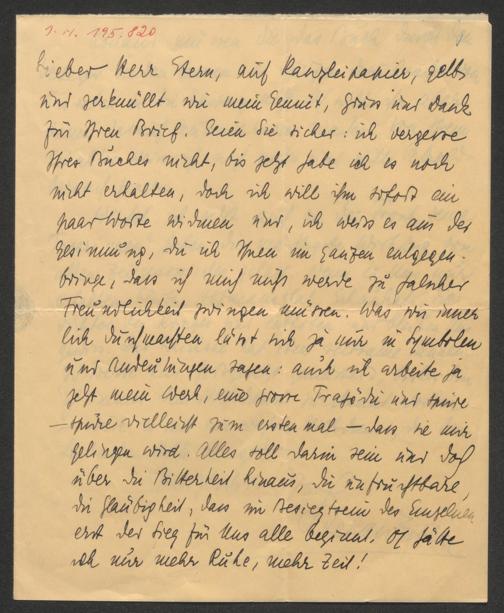 I.N. 195.820
Lieber Herr Stern, auf Kanzleipapier, gelb
und zerknüllt wie mein Gemüt, Gruss und Dank
für Ihren Brief. Seien Sie sicher: ich vergesse
Ihres Buches nicht, bis jetzt habe ich es noch
nicht erhalten, doch ich will ihm sofort ein
paar Worte widmen und, ich weiss es aus der
Gesinnung, die ich Ihnen im Ganzen entgegen-
bringe, dass ich mich nicht werde zu falscher
Freundlichkeit zwingen müssen. Was wir inner
lich durchmachten lässt sich ja nur in Symbolen
und Andeutungen sagen: auch ich arbeite ja
jetzt mein Werk, eine grosse Tragödie und spüre
– spüre vielleicht zum ersten mal – dass sie mir
gelingen wird. Alles soll darin sein und doch
über die Bitterkeit hinaus, die unfruchtbare,
die Gläubigkeit, dass im Besiegtsein des Einzelnen
erst der Sieg für uns alle beginnt. O hätte
ich nur mehr Ruhe, mehr Zeit!